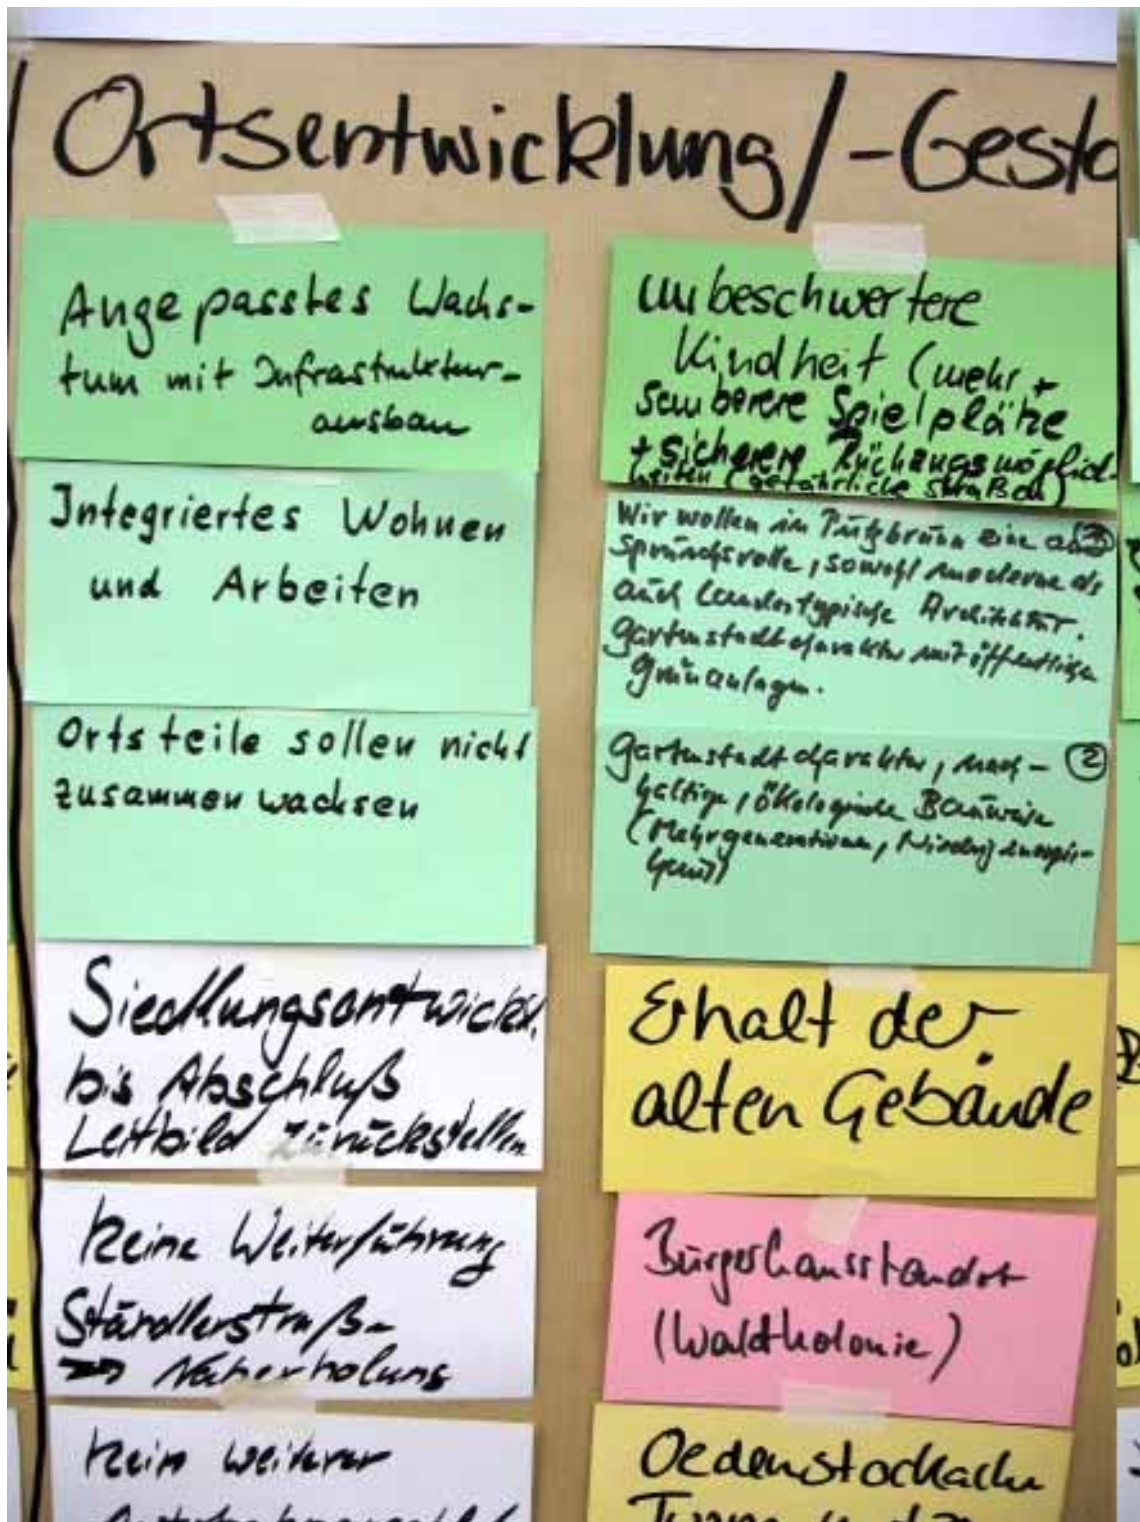 Ortsentwicklung/-Gesta
Angepasstes Wachs-
tum mit Infrastruktur-
ausbau
Integriertes Wohnen
und Arbeiten
Ortsteile sollen nicht
zusammenwachsen
Siedlungsentwickl.
bis Abschluß
Leitbild zurückstellen
Keine Weiterführung
Ständlerstraße
Naherholung
Kein weiterer
unbeschwertere
Kindheit (mehr +
sauberere Spielplätze
+ sicherere Rückzugsmöglich-
keiten (gefährliche Straßen)
Wir wollen in Putzbrunn eine an
spruchsvolle, sowohl moderne als
auch landestypische Architektur.
Gartenstadtcharakter mit öffentlichen
Grünanlagen.
Gartenstadtcharakter, nach- 2
haltige, ökologische Bauweise
(Mehrgenerationen, Niedrigenergie-
Erhalt der
alten Gebäude
Bürgerhausstandort
(Waldkolonie)
Oedenstockach